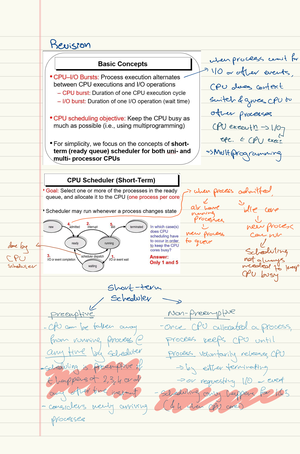 Revision
Basic Concepts
• CPU–I/O Bursts: Process execution alternates
between CPU executions and I/O operations
– CPU burst: Duration of one CPU execution cycle
– I/O burst: Duration of one I/O operation (wait time)
• CPU scheduling objective: Keep the CPU busy as
much as possible (i.e., using multiprogramming)
• For simplicity, we focus on the concepts of short-
term (ready queue) scheduler for both uni- and
multi- processor CPUs
when process wait for
I/O or other events,
CPU does context
switch & gives CPU to
other processes
→ Multiprogramming
CPU Scheduler (Short-Term)
• Goal: Select one or more of the processes in the ready
queue, and allocate it to the CPU (one process per core
• Scheduler may run whenever a process changes state
new
admitted
interrupt
exit
terminated
ready
running
scheduler dispatch
I/O or event completion
I/O or event wait
waiting
In which case(s)
does CPU
scheduling have
to occur in order
to keep the CPU
cores busy?
Answer:
Only 1 and 5
done by
CPU
scheduler
→ when process admitted
idle core
running
processes
new process
to queue
new process
Scheduling
not always
needed to keep
CPU busy
Short-term
Scheduler
preemptive
- CPU can be taken away
from running process @
any time by scheduler
- scheduling is preemptive if
- considers newly arriving
processes
Non-Preemptive
- Once CPU allocated to process,
process keeps CPU until
process voluntarily release CPU
→ by either terminating
→ or requesting I/O or event
- scheduling only happens for 1 & 5